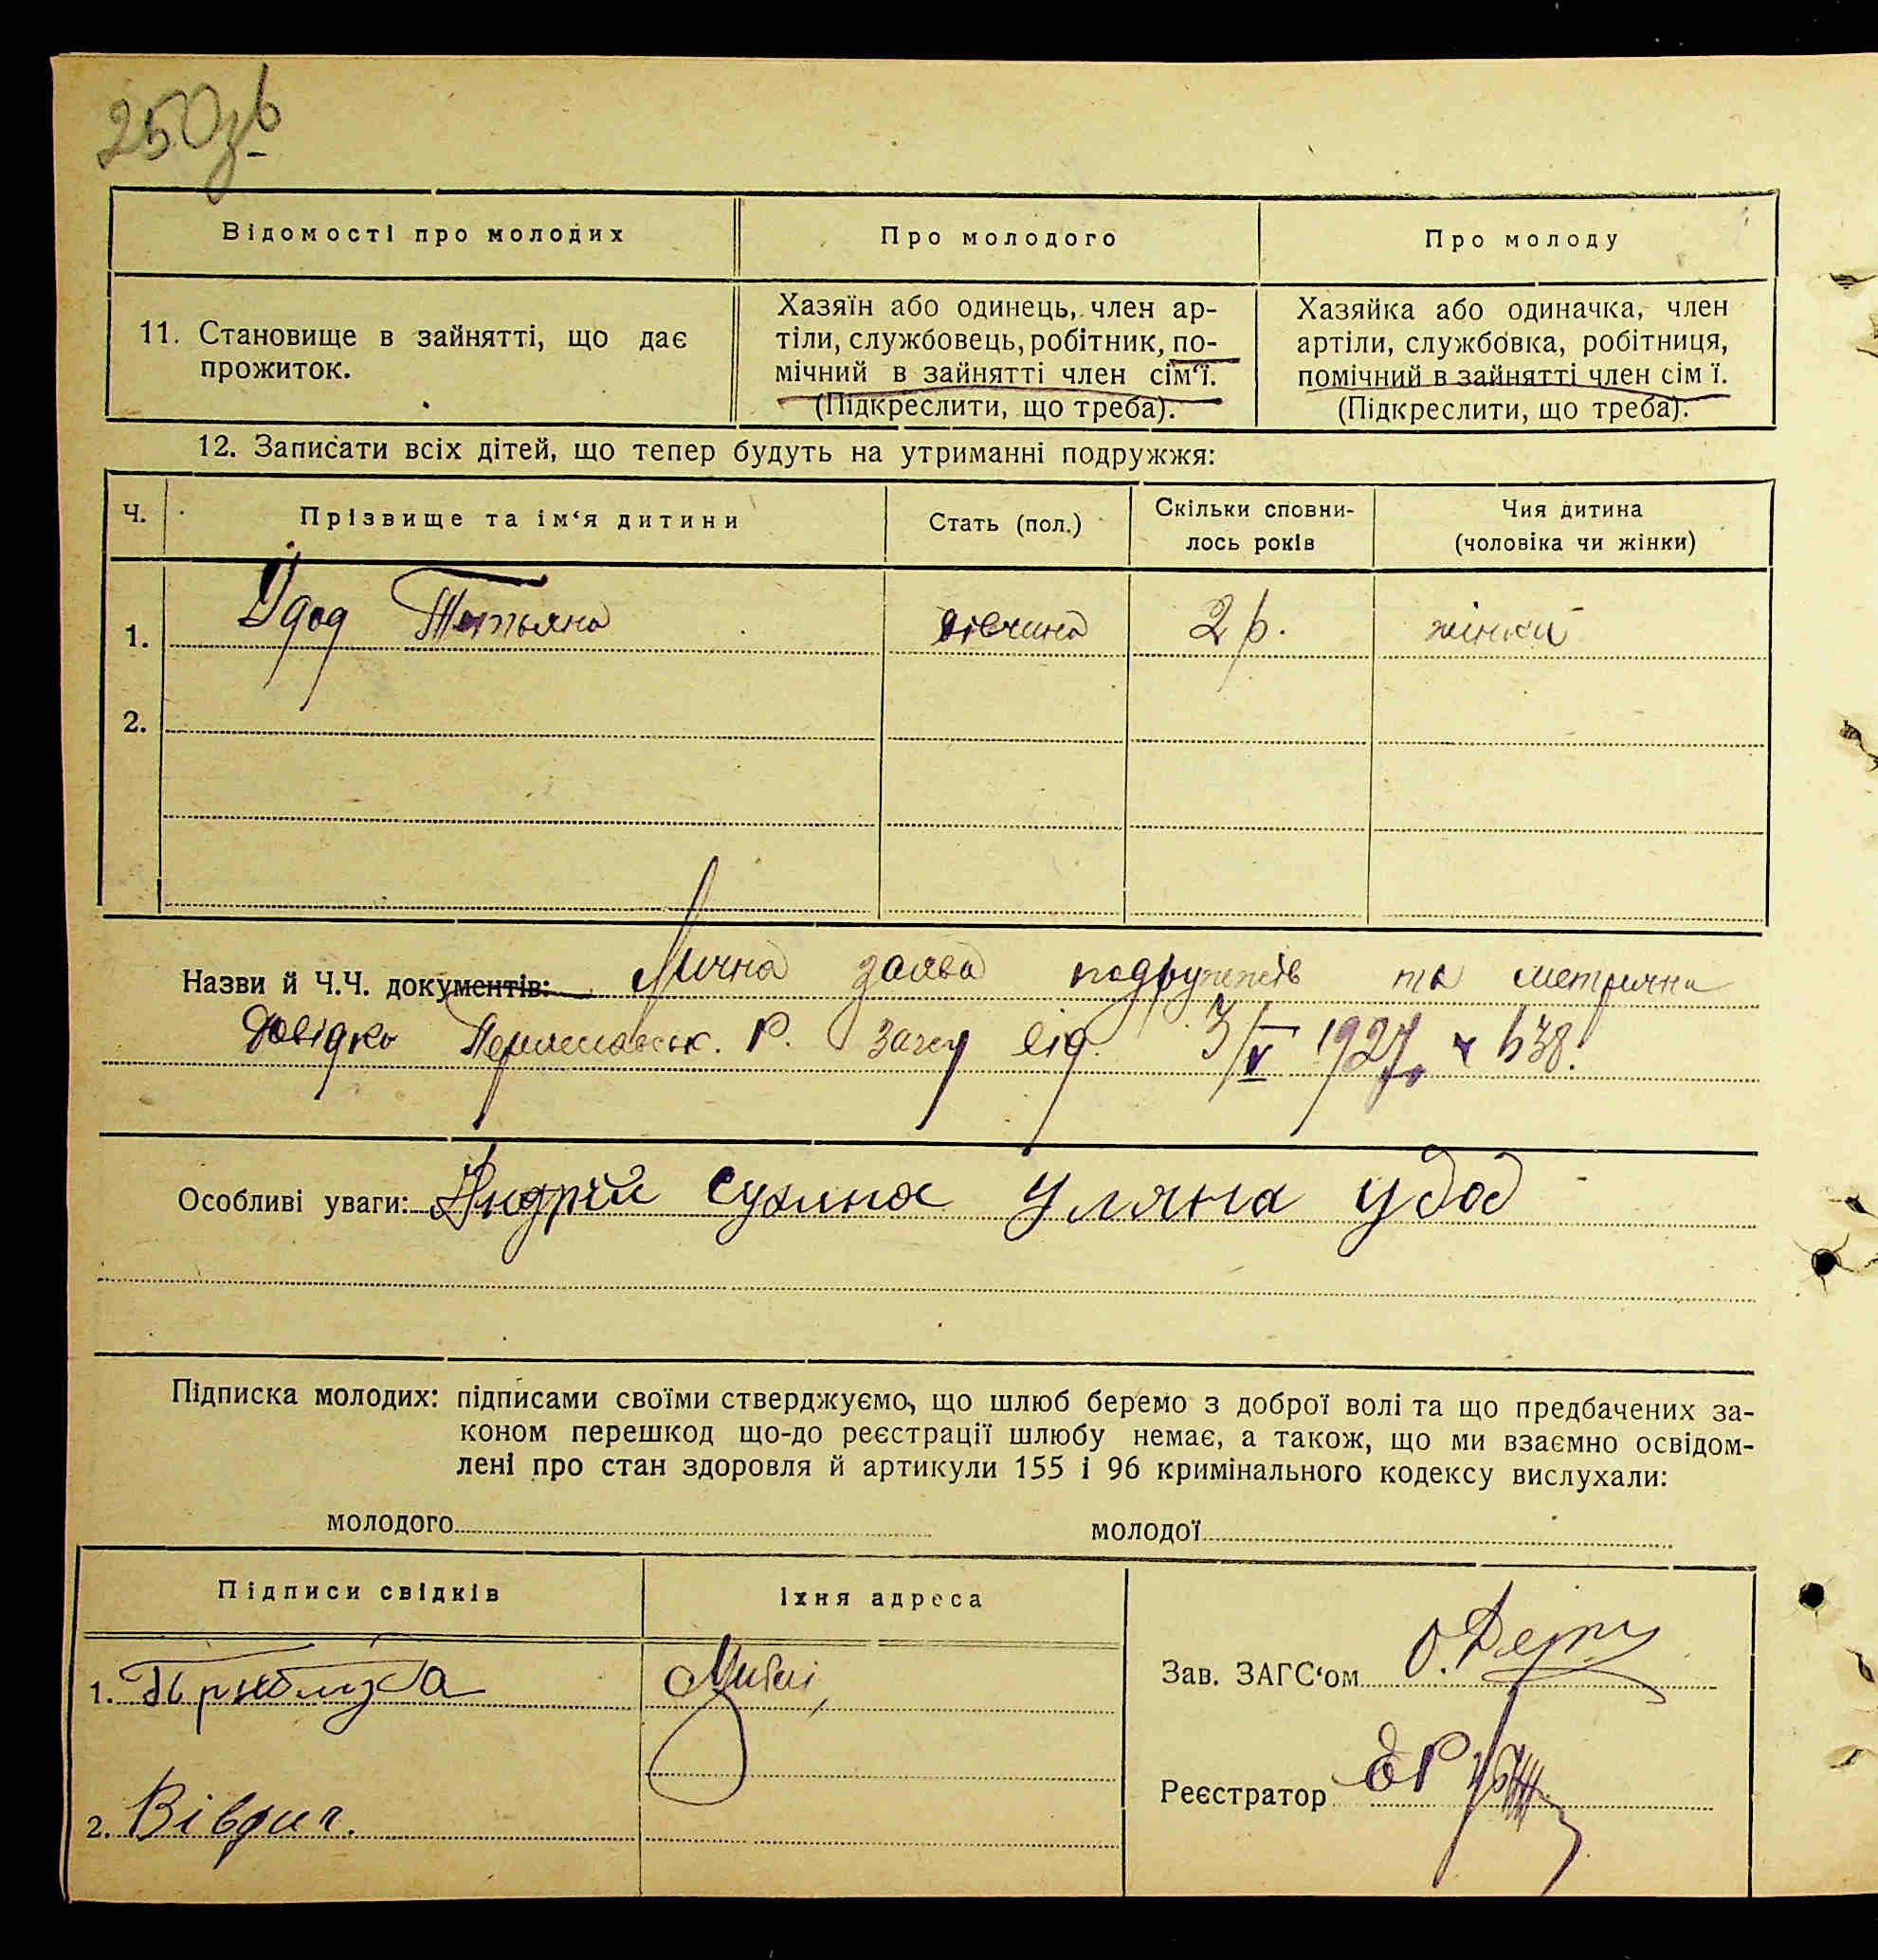 250зв
Відомості про молодих
Про молодого
Про молоду
11. Становище в зайнятті, що дає
прожиток.
Хазяїн або одинець, член ар-
тіли, службовець, робітник, по-
мічний в зайнятті член сім'ї.
(Підкреслити, що треба).
Хазяйка або одиначка, член
артіли, службовка, робітниця,
помічний в зайнятті член сім ї.
(Підкреслити, що треба).
12. Записати всіх дітей, що тепер будуть на утриманні подружжя:
Ч.
Прізвище та ім'я дитини
Стать (пол.)
Скільки сповни-
лось років
Чия дитина
(чоловіка чи жінки)
1. Удод Тетьяна дівчина 2 р. жінки
2.
Назви й Ч.Ч. документів: Лична заява подружжів та метрична
Довідка Переяславськ. Р. Загсу від 3/V 1927 ч 638.
Особливі уваги: Андрій Сухина Уляна Удод
Підписка молодих: підписами своїми стверджуємо, що шлюб беремо з доброї волі та що предбачених за-
коном перешкод що-до реєстрації шлюбу немає, а також, що ми взаємно освідом-
лені про стан здоровля й артикули 155 і 96 кримінального кодексу вислухали:
молодого
молодої
Підписи свідків
Їхня адреса
1. Приблуда
Зав. ЗАГС'ом
Реєстратор
2. Вівдич.